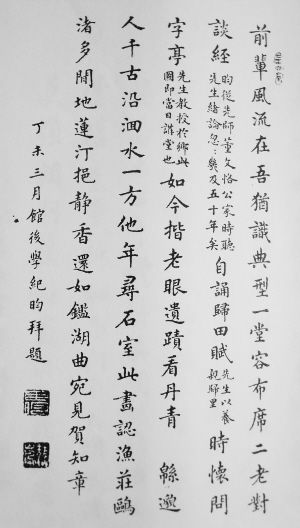 前輩風流在吾猶識典型一堂容布席二老對
談經昀從先師董文恪公家時聽先生緒論忽〻幾及五十年矣自誦歸田賦先生以養親歸里時懷問
字亭先生教授於鄉此圖即當日講堂也如今揩老眼遺蹟看丹青 緜邈
人千古沿洄水一方他年尋石室此畫認漁莊鷗
渚多閒地蓮汀挹靜香還如鑑湖曲宛見賀知章
丁未三月館後學紀昀拜題